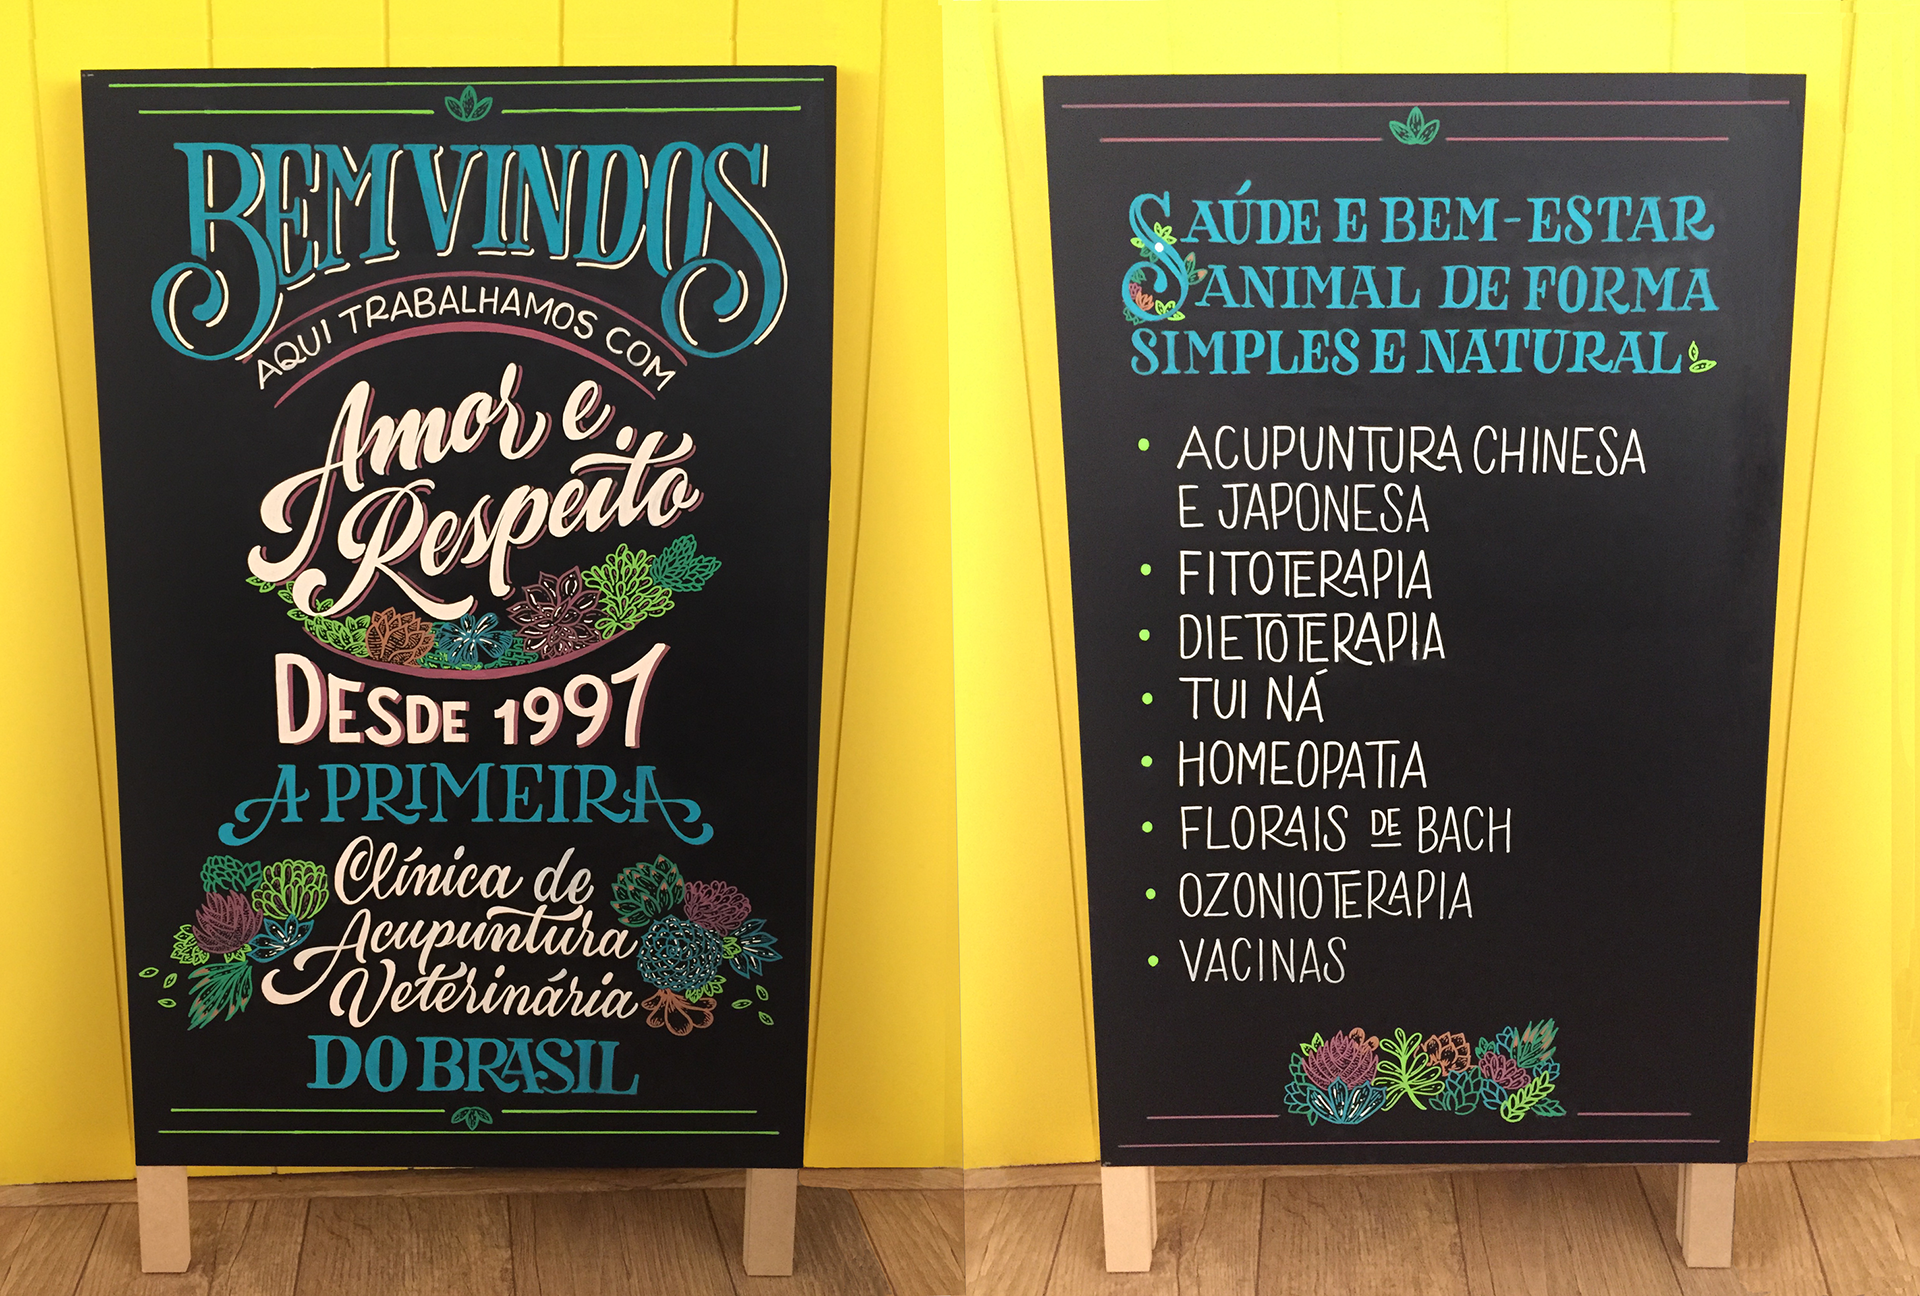 BEMVINDOS
AQUI TRABALHAMOS COM
Amor e
Respeito
DESDE 1997
A PRIMEIRA
Clínica de
Acupuntura
Veterinária
DO BRASIL
SAÚDE E BEM-ESTAR
ANIMAL DE FORMA
SIMPLES E NATURAL
• ACUPUNTURA CHINESA
E JAPONESA
• FITOTERAPIA
• DIETOTERAPIA
• TUI NÁ
• HOMEOPATIA
• FLORAIS DE BACH
• OZONIOTERAPIA
• VACINAS